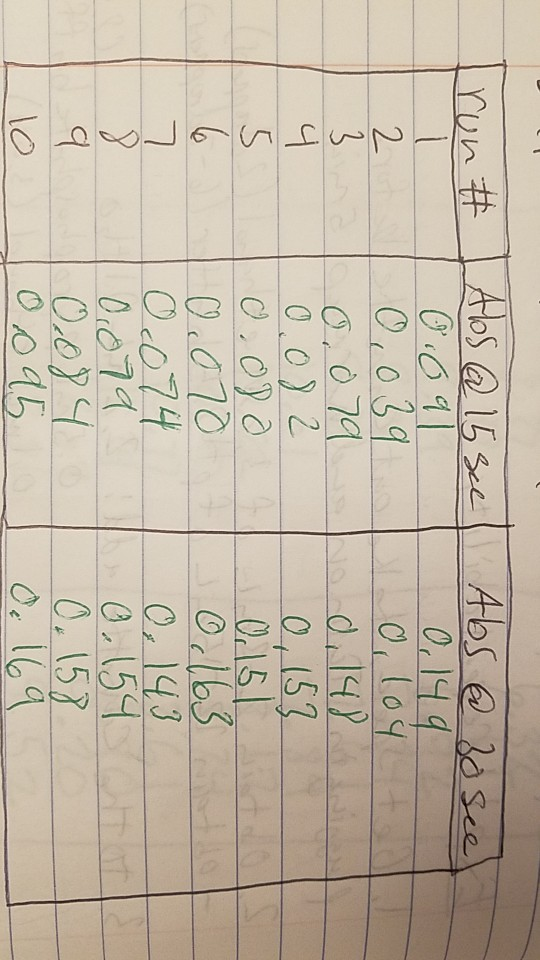 run # Abs @ 15 sec Abs @ 30 sec
1 0.091 0.149
2 0.039 0.104
3 0.079 0.148
4 0.082 0.153
5 0.080 0.151
6 0.070 0.163
7 0.074 0.143
8 0.079 0.154
9 0.084 0.158
10 0.095 0.169